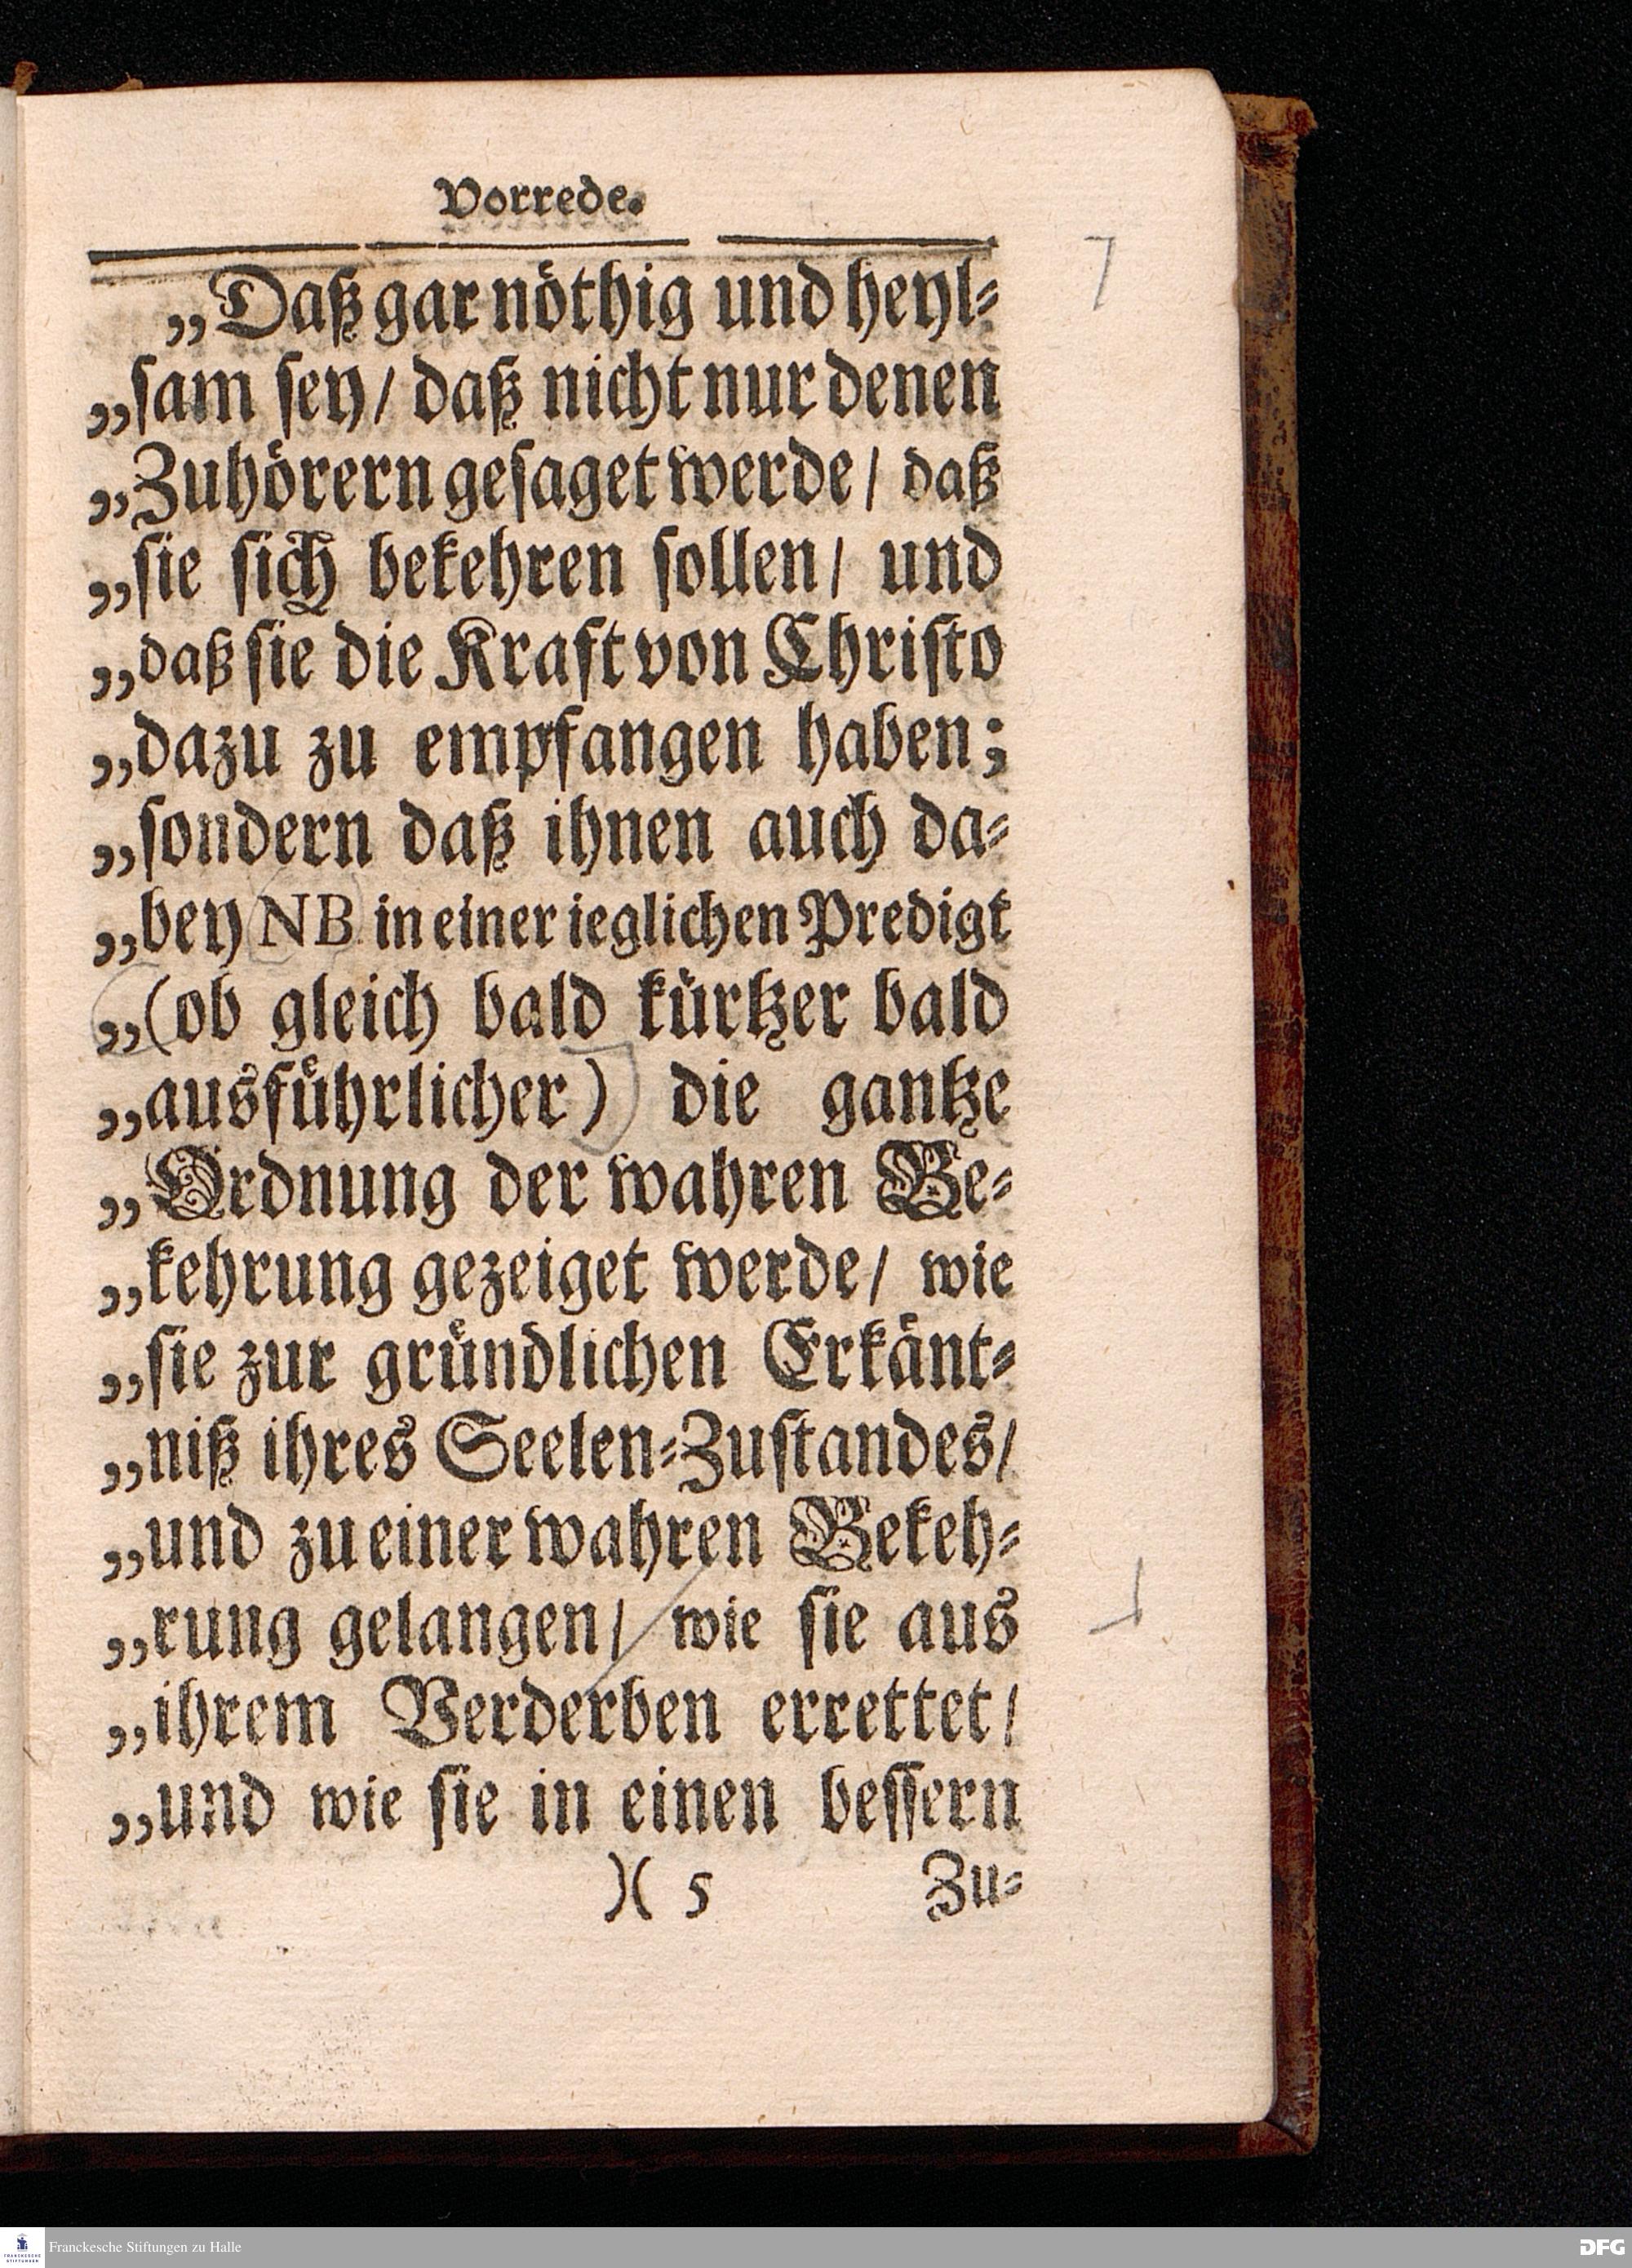 Vorrede.
„Daß gar nöthig und heyl⸗
„sam sey/ daß nicht nur denen
„Zuhörern gesaget werde/ daß
„sie sich bekehren sollen/ und
„daß sie die Kraft von Christo
„dazu zu empfangen haben;
„sondern daß ihnen auch da⸗
„bey NB. in einer ieglichen Predigt
„(ob gleich bald kürtzer bald
„ausführlicher) die gantze
„Ordnung der wahren Be⸗
„kehrung gezeiget werde/ wie
„sie zur gründlichen Erkänt⸗
„niß ihres Seelen⸗Zustandes/
„und zu einer wahren Bekeh⸗
„rung gelangen/ wie sie aus
„ihrem Verderben errettet/
„und wie sie in einen bessern
)( 5 Zu⸗
FRANCKESCHE STIFTUNGEN
Franckesche Stiftungen zu Halle
DFG